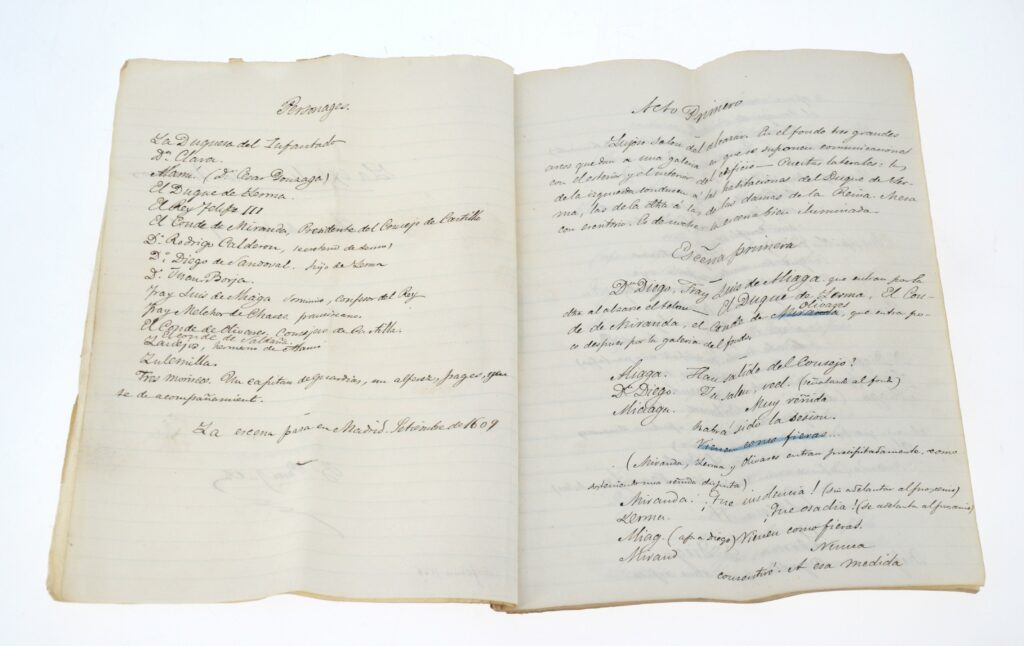 Personages.
La Duquesa del Infantado
Dª Clara.
Alami. (Dⁿ Cesar Gonzaga)
El Duque de Lerma.
El Rey Felipe III
El Conde de Miranda, Presidente del Consejo de Castilla
Dⁿ Rodrigo Calderon,
Dⁿ Diego de Sandoval. hijo de Lerma
Dⁿ Juan Borja.
Fray Luis de Aliaga dominico, confesor del Rey
Fray Melchor de Chaves franciscano.
El Conde de Olivares, Consejero de Castilla.
y el conde de Saldaña
hermano de Alami
Zulemilla.
Tres moriscos. Un capitan de guardias, un alferez, pages,
te de acompañamient.
La escena pasa en Madrid. Setiembre de 1609
Acto Primero
Lujoso salon del alcazar. En el fondo tres grandes
arcos que dan a una galeria en que se suponen comunicaciones
con el esterior y el interior del edificio — Puertas laterales: la
de la izquierda conducen á las habitaciones del Duque de Ler-
ma, las de la dᵗᵃ á la, de las damas de la Reina. Mesa
con escritorio. Es de noche, la escena bien iluminada.
Esceña primera
Dⁿ Diego, Fray Luis de Aliaga que entran por la
dᵗᵃ al alzarse el telon — El Duque de Lerma, El Con-
de de Miranda, el Conde de Miranda, Olivares que entra po-
co despues por la galeria del fondo.
Aliaga. Han salido del Consejo?
Dⁿ Diego. Ya salen, ved. (señalando al fondo)
Miaga. Muy reñida
habrá sido la sesion.
Vienen como fieras...
(Miranda, Lerma y Olivares entran precipitadamente, como
sosteniendo una reñida disputa)
Miranda. ¡Que insolencia! (sin adelantar al proscenio)
Lerma. ¡Que osadia! (se adelanta al proscenio)
Aliag. (ap. a Diego) Vienen como fieras.
Mirand Nunca
consentiré. A esa medida